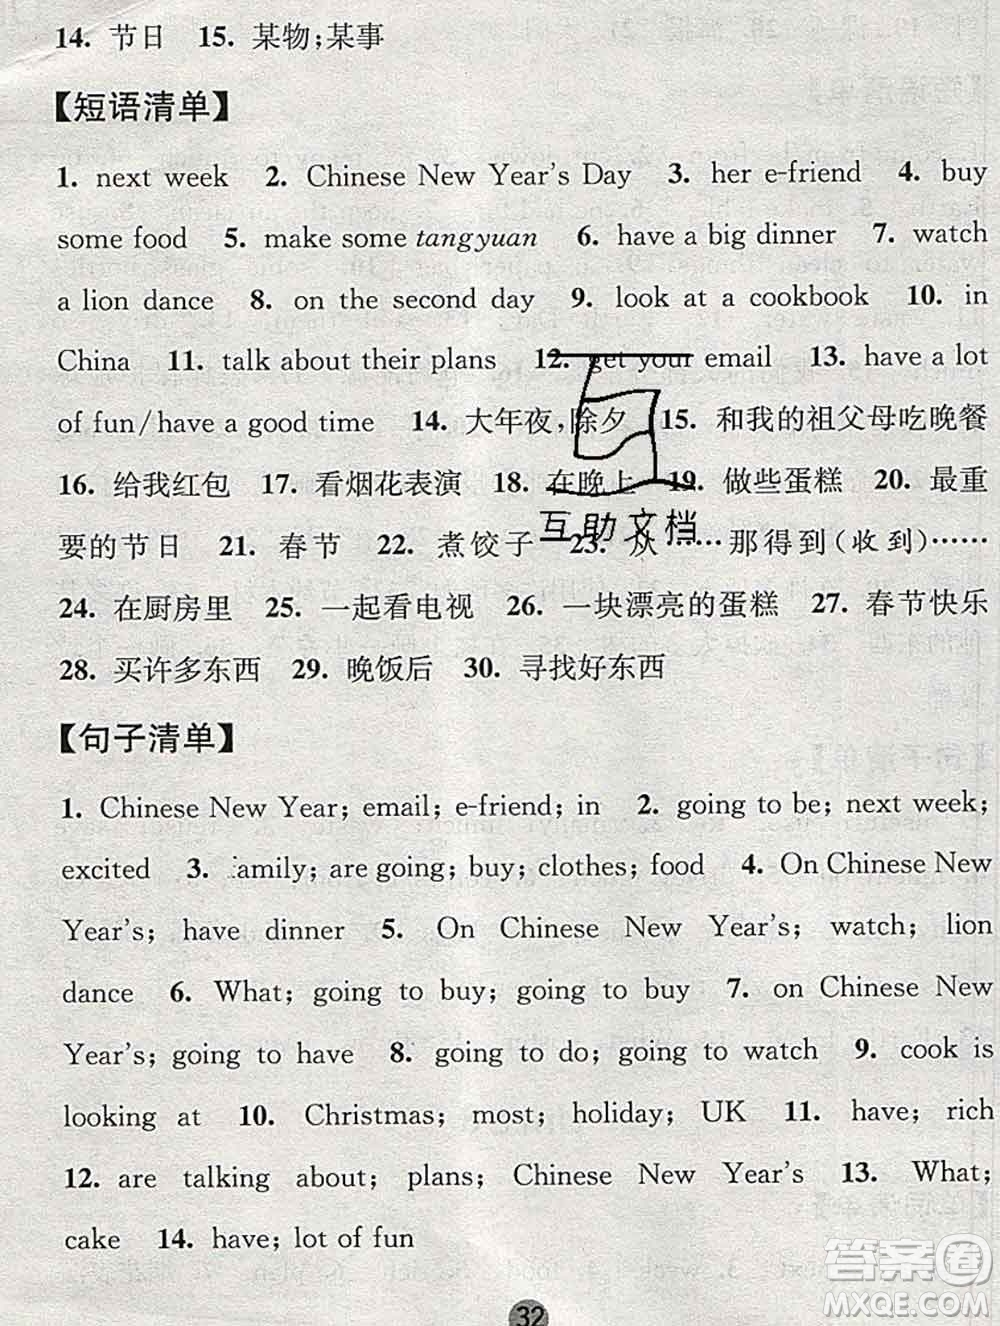 14. 节日 15. 某物;某事
【短语清单】
1. next week 2. Chinese New Year's Day 3. her e-friend 4. buy
some food 5. make some tangyuan 6. have a big dinner 7. watch
a lion dance 8. on the second day 9. look at a cookbook 10. in
China 11. talk about their plans 12. get your email 13. have a lot
of fun/have a good time 14. 大年夜,除夕 15. 和我的祖父母吃晚餐
16. 给我红包 17. 看烟花表演 18. 在晚上 19. 做些蛋糕 20. 最重
要的节日 21. 春节 22. 煮饺子 23. 从……那得到(收到)……
24. 在厨房里 25. 一起看电视 26. 一块漂亮的蛋糕 27. 春节快乐
28. 买许多东西 29. 晚饭后 30. 寻找好东西
互助文档
【句子清单】
1. Chinese New Year; email; e-friend; in 2. going to be; next week;
excited 3. family; are going; buy; clothes; food 4. On Chinese New
Year's; have dinner 5. On Chinese New Year's; watch; lion
dance 6. What; going to buy; going to buy 7. on Chinese New
Year's; going to have 8. going to do; going to watch 9. cook is
looking at 10. Christmas; most; holiday; UK 11. have; rich
12. are talking about; plans; Chinese New Year's 13. What;
cake 14. have; lot of fun
32
答案圈
MXQE.COM